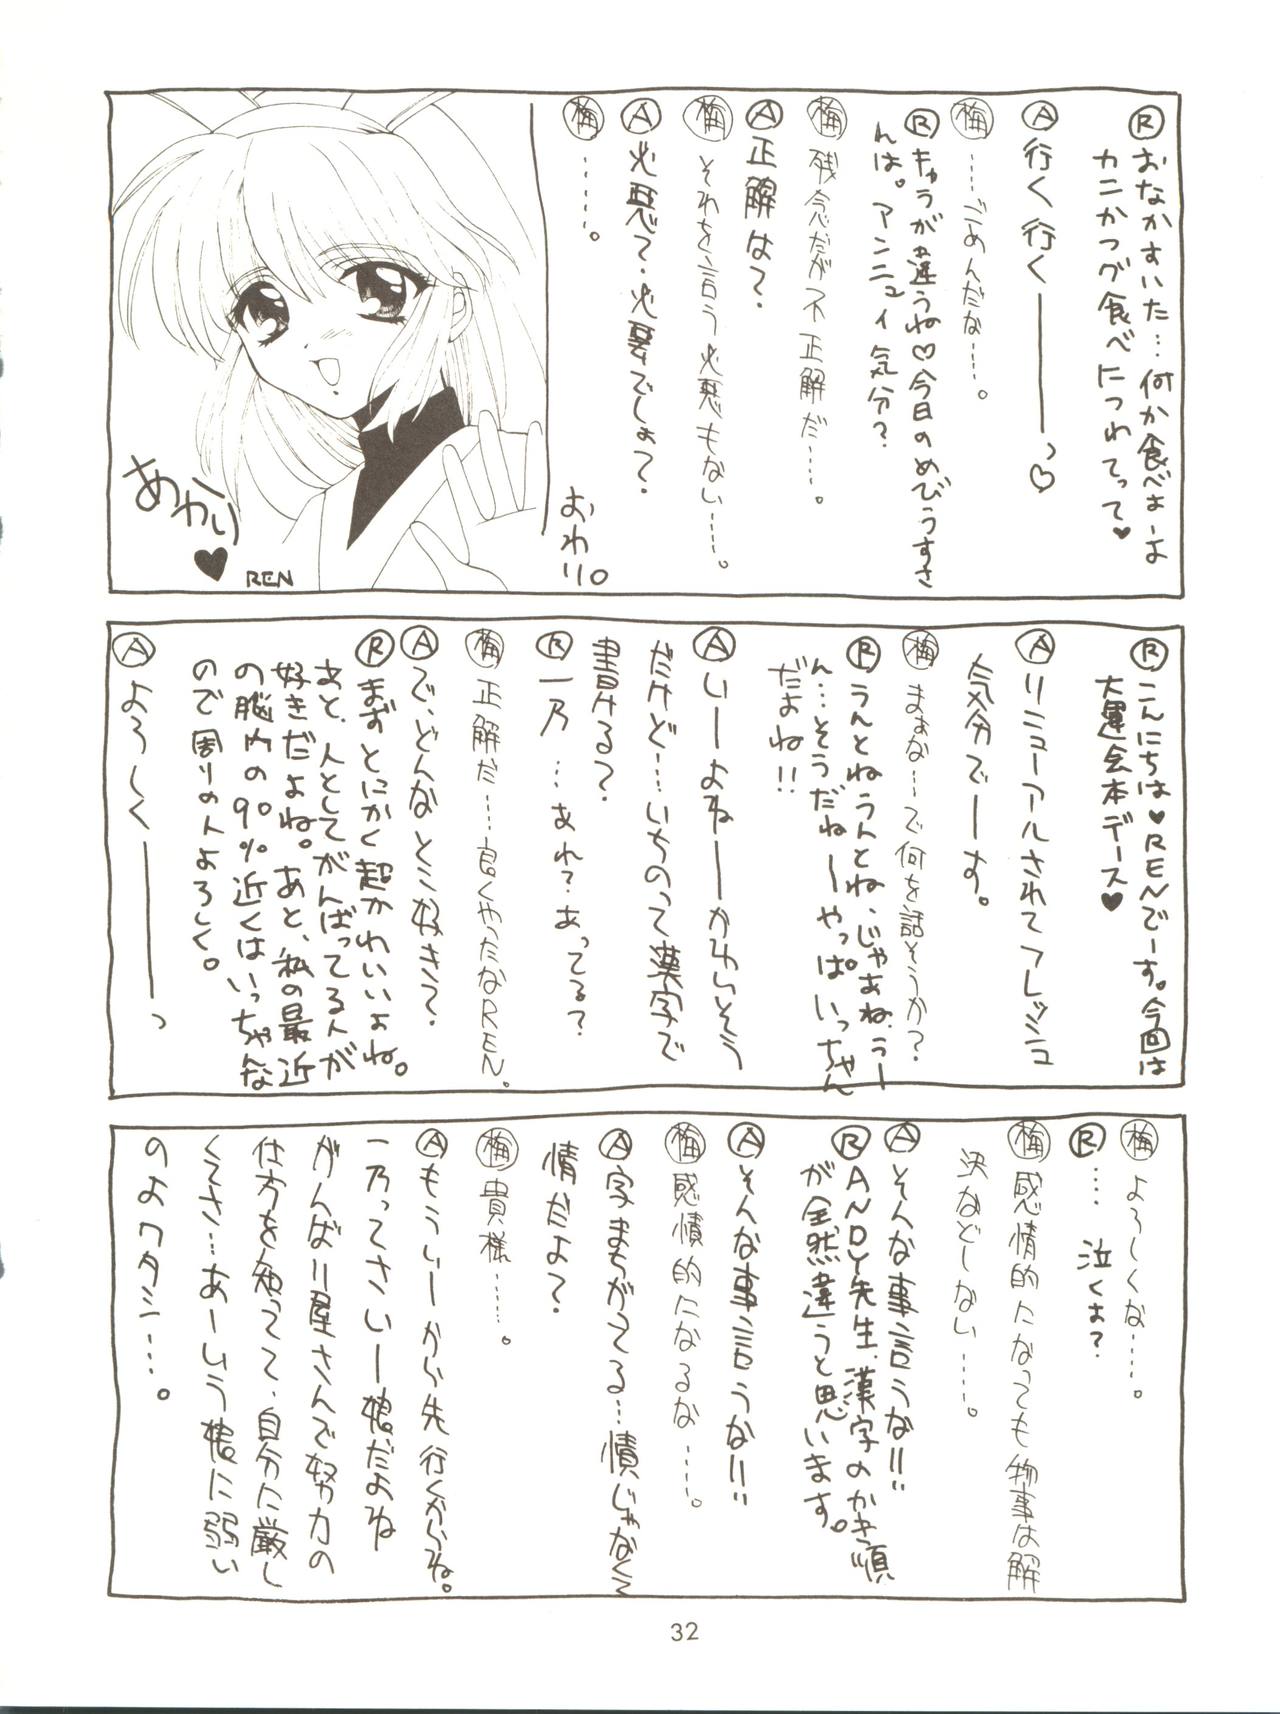 Ⓡおなかすいた…何か食べよーよ
カニかつグ食べにつれてって♥
Ⓐ行く行く————っ♡
㊗梅……ごめんだな……。
Ⓡキゅうがね違うね♡今日のめびうすさ
んは。アンニュイ気分?
梅 残念だが不正解だ……。
Ⓐ正解は?
梅 それを言う必要もない……。
Ⓐ必悪て・必要でしょ?
梅……。
おわり。
あかり♥
REN
Ⓡこんにちは♥RENでーす。今回は
大運会本デース♥
Ⓐリニューアルされてフレッシュ
気分でーす。
梅 まぁな…で何を話そうか?
Ⓡうんとねうんとね、じゃあね、うー
ん…そうだねーやっぱいっちゃん
だよね!!
Ⓐいーよねーーかわいそう
だけど…いちのって漢字で
書ける?
Ⓡ一乃…あれ?あってる?
梅 正解だ……良くやったなREN。
Ⓐで、どんなとこ好き?
Ⓡまずとにかく超かわいいよね。
あと、人としてがんばってる人が
好きだよね。あと、私の最近
の脳内の90%近くはいっちゃんな
ので周りの人よろしく。
Ⓐよろしく————っ
梅 よろしくな……。
Ⓡ…泣くよ?
梅 感情的になっても物事は解
決などしない……。
Ⓐそんな事言うな!!
ⓇANDY先生、漢字のかき順
が全然違うと思います。
Ⓐそんな事言うな!!
梅 感債的になるな……。
Ⓐ字まちがってる…債じゃなくて
情だよ?
梅 貴様……。
Ⓐもういーから先行くからね。
一乃ってさいー娘だよね
がんばり屋さんで努力の
仕方を知ってて、自分に厳し
くてさ…あーいう娘に弱い
のよワタシ…。
32